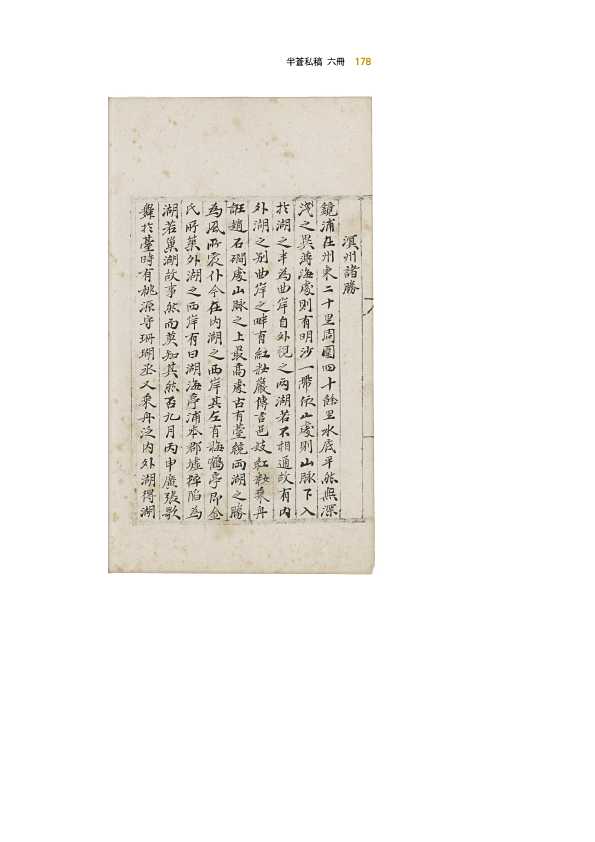 半蒼私稿 六冊 178
溟州諸勝
鏡浦在州東二十里周圍四十餘里水底平然無深
淺之異薄海處則有明沙一帶依山處則山脉下入
於湖之半為曲岸自外視之兩湖若不相通故有內
外湖之別曲岸之畔有紅粧巖傳言邑妓紅粧乘舟
誑趙石磵處山脉之上最高處古有臺鏡兩湖之勝
為風所哀仆今在內湖之西岸其左有鶴亭即金
氏所築外湖之西岸有曰湖海亭浦本郡墟陷為
湖若巢湖故事然而莫知其然否九月丙申廣張歌
舞於臺時有桃源守珊瑚丞又乘舟泛內外湖得湖